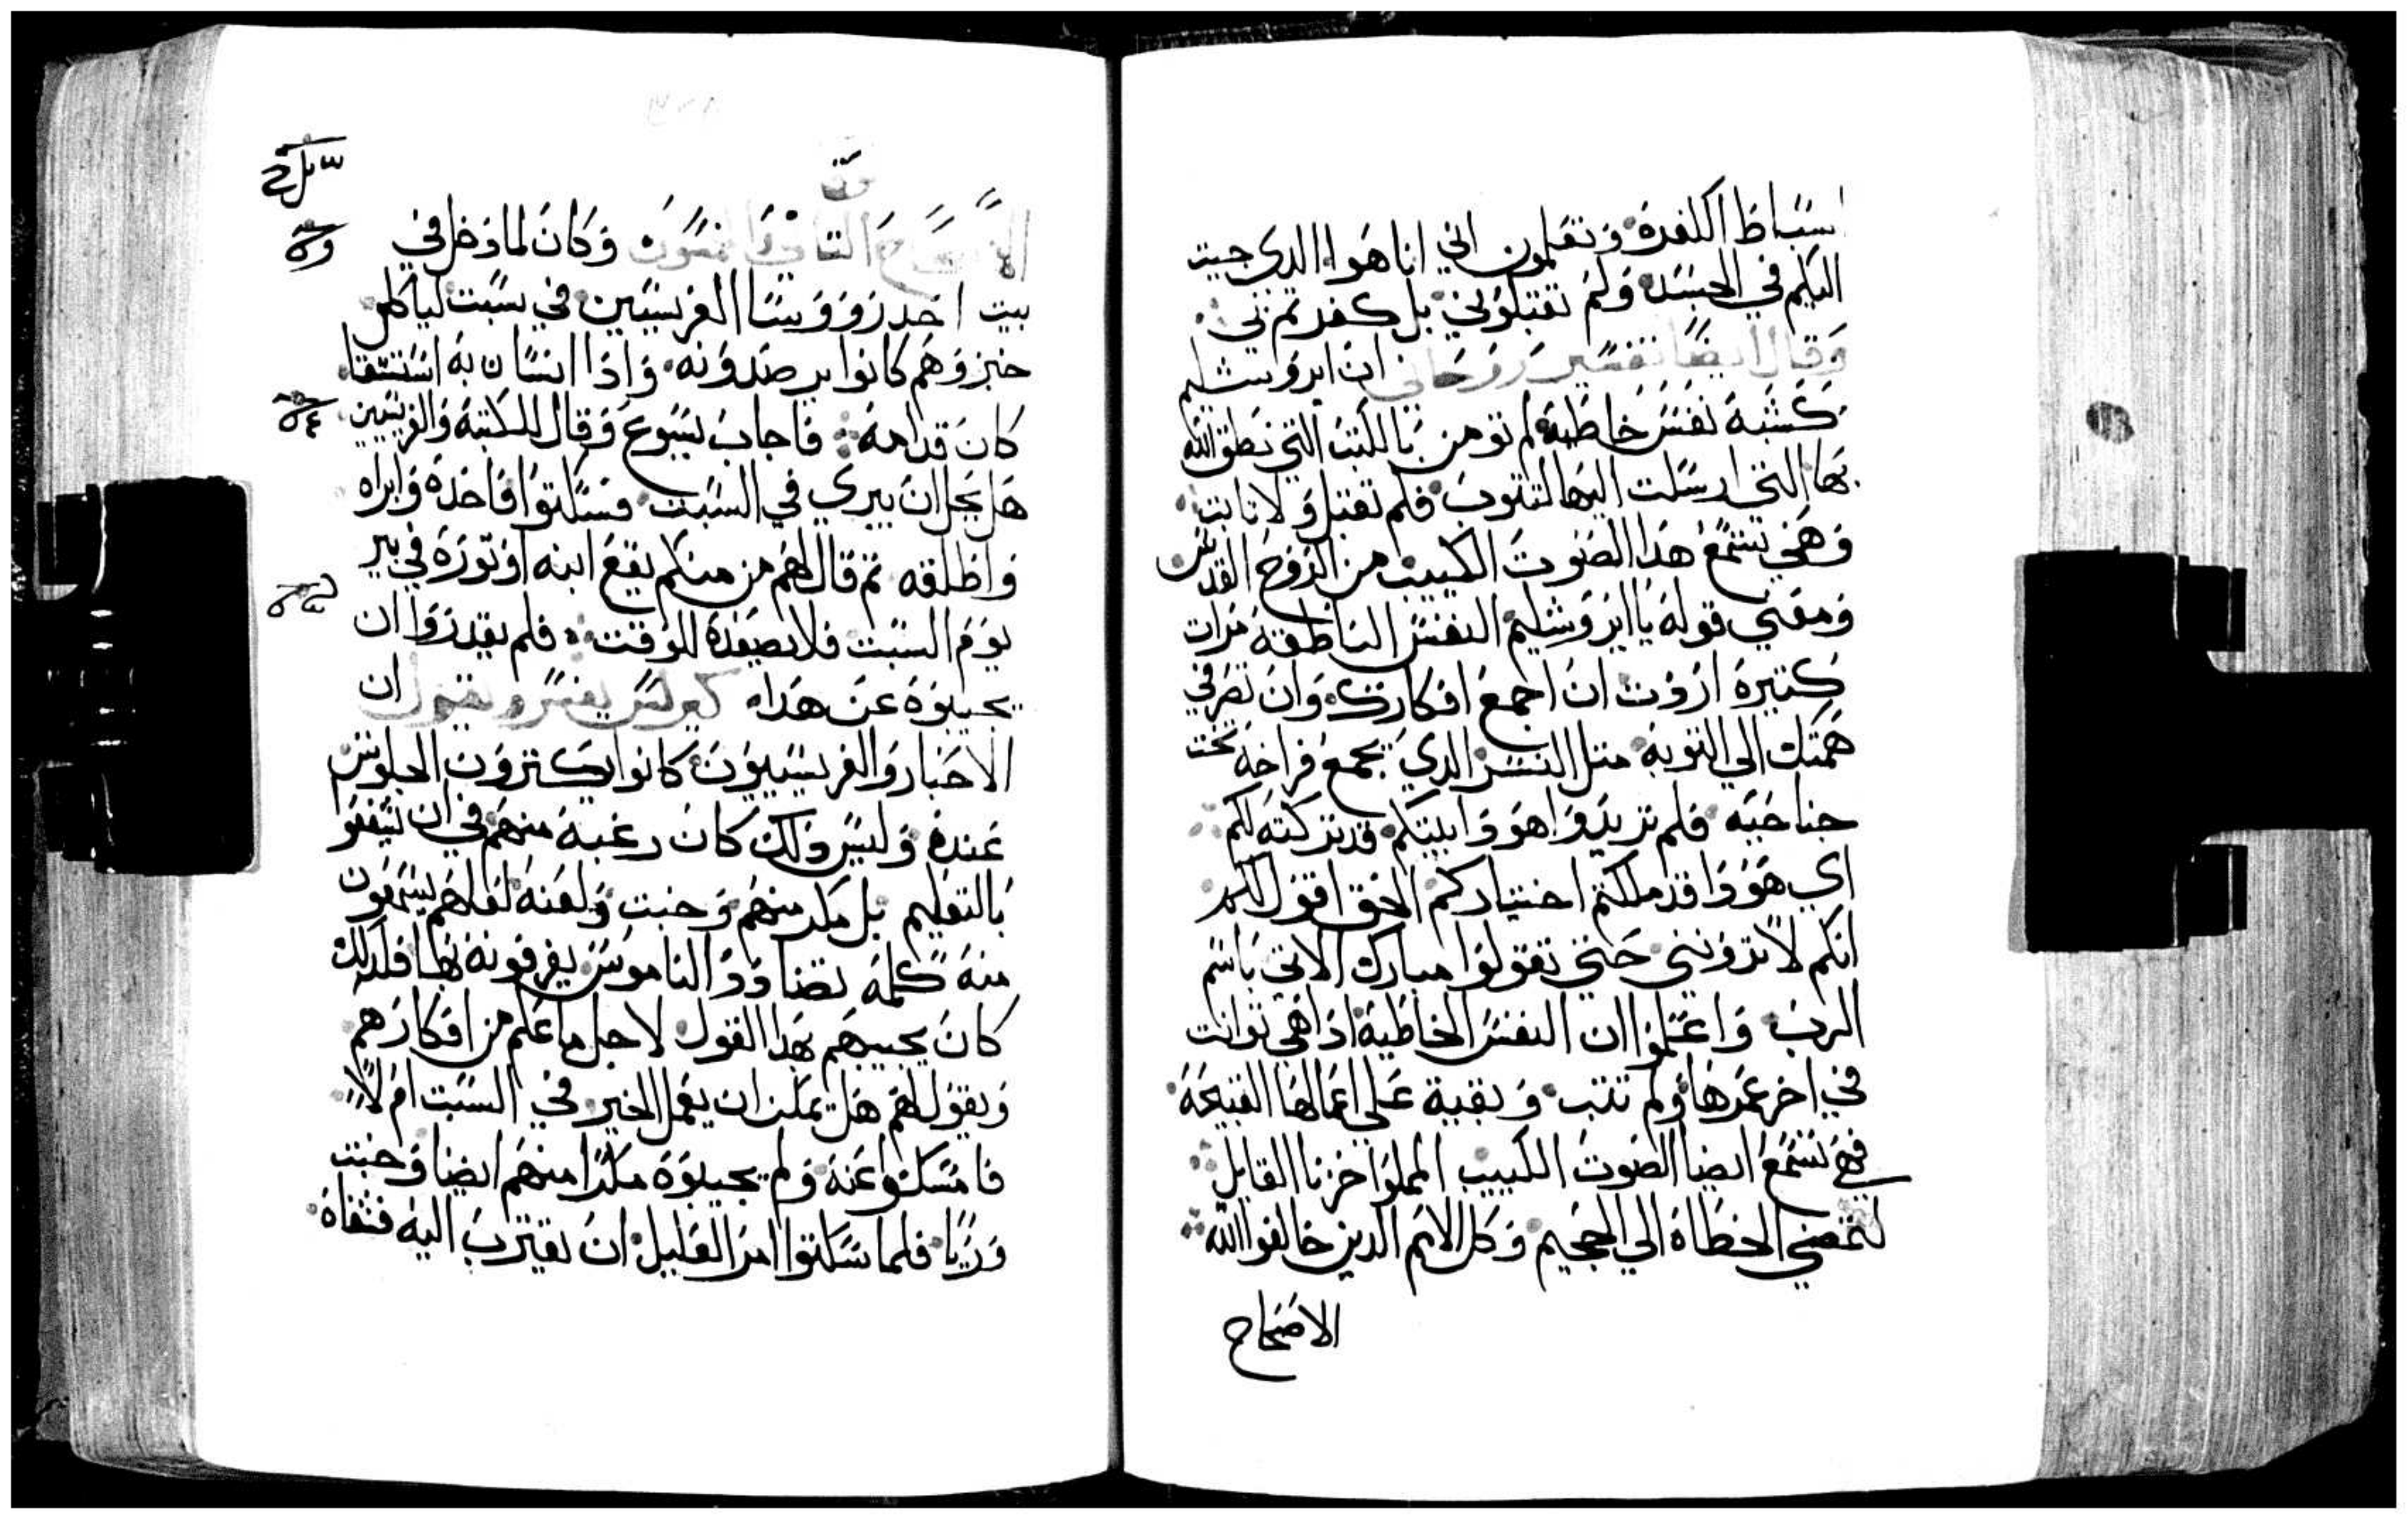 اسباط الكفرة وتعلمون اني انا هوا الدي جيت
اليكم في الجسد ولم تقبلوني بل كفرتم بي
وقال ايضا تفسير روحاني ان ايروشليم
كشبه نفس خاطية لم تومن بالكتب التي نطق الله
بها التي ارسلت اليها لتتوب فلم تقبل ولا تابت
وهي تسمع هدا الصوت الكييب من الروح القدس
ومعني قوله يا ايروشليم النفس الناطقة مرات
كتيرة اردت ان اجمع افكارك وان تصرفي
همتك الي التوبة متل النسر الدي يجمع فراخه تحت
جناحيه فلم تريدوا هودا بيتكم قد تركته لكم
اي هودا قد ملكتم اختياركم الحق اقول لكم
انكم لا تروني حتي تقولوا مبارك الاتي باسم
الرب واعلموا ان النفس الخاطية ادا هي توانت
في اخر عمرها ولم تتب وبقية علي اعمالها القبيحة
فهي تسمع ايضا الصوت الكييب المملوا حزنا القايل
لتمضي الخطاة الي الجحيم وكل الامم الدين خالفوا الله
الاصحاح
الاصحاح التاني والخمسون وكان لما دخل في
بيت احد رووسا الفريسيين في سبت لياكل
خبز وهم كانوا يرصدونه وادا انسان به استسقا
كان قدامه فاجاب يسوع وقال للكتبة والفريسيين
هل يحل ان يبري في السبت فسكتوا فاخده وابراه
واطلقه تم قال لهم من منكم يقع ابنه او توره في بير
يوم السبت فلا يصعده للوقت فلم يقدروا ان
يجيبوه عن هدا كيرلس يفسر ويقول ان
الاحبار والفريسيون كانوا يكترون الجلوس
عنده وليس دلك كان رغبة منهم في ان ينتفعو
بالتعليم بل مكر منهم وخبت ولعنه لعلهم يسمعون
منه كلمة تضادد الناموس يقرفونه بها فلدلك
كان يجيبهم بهدا القول لاجل ما علم من افكارهم
ويقول لهم هل يمكن ان يعمل الخير في السبت ام لا
فامسكوا عنه ولم يجيبوه مكرا منهم ايضا وخبت
وريا فلما سكتوا امر العليل ان يقترب اليه فشفاه